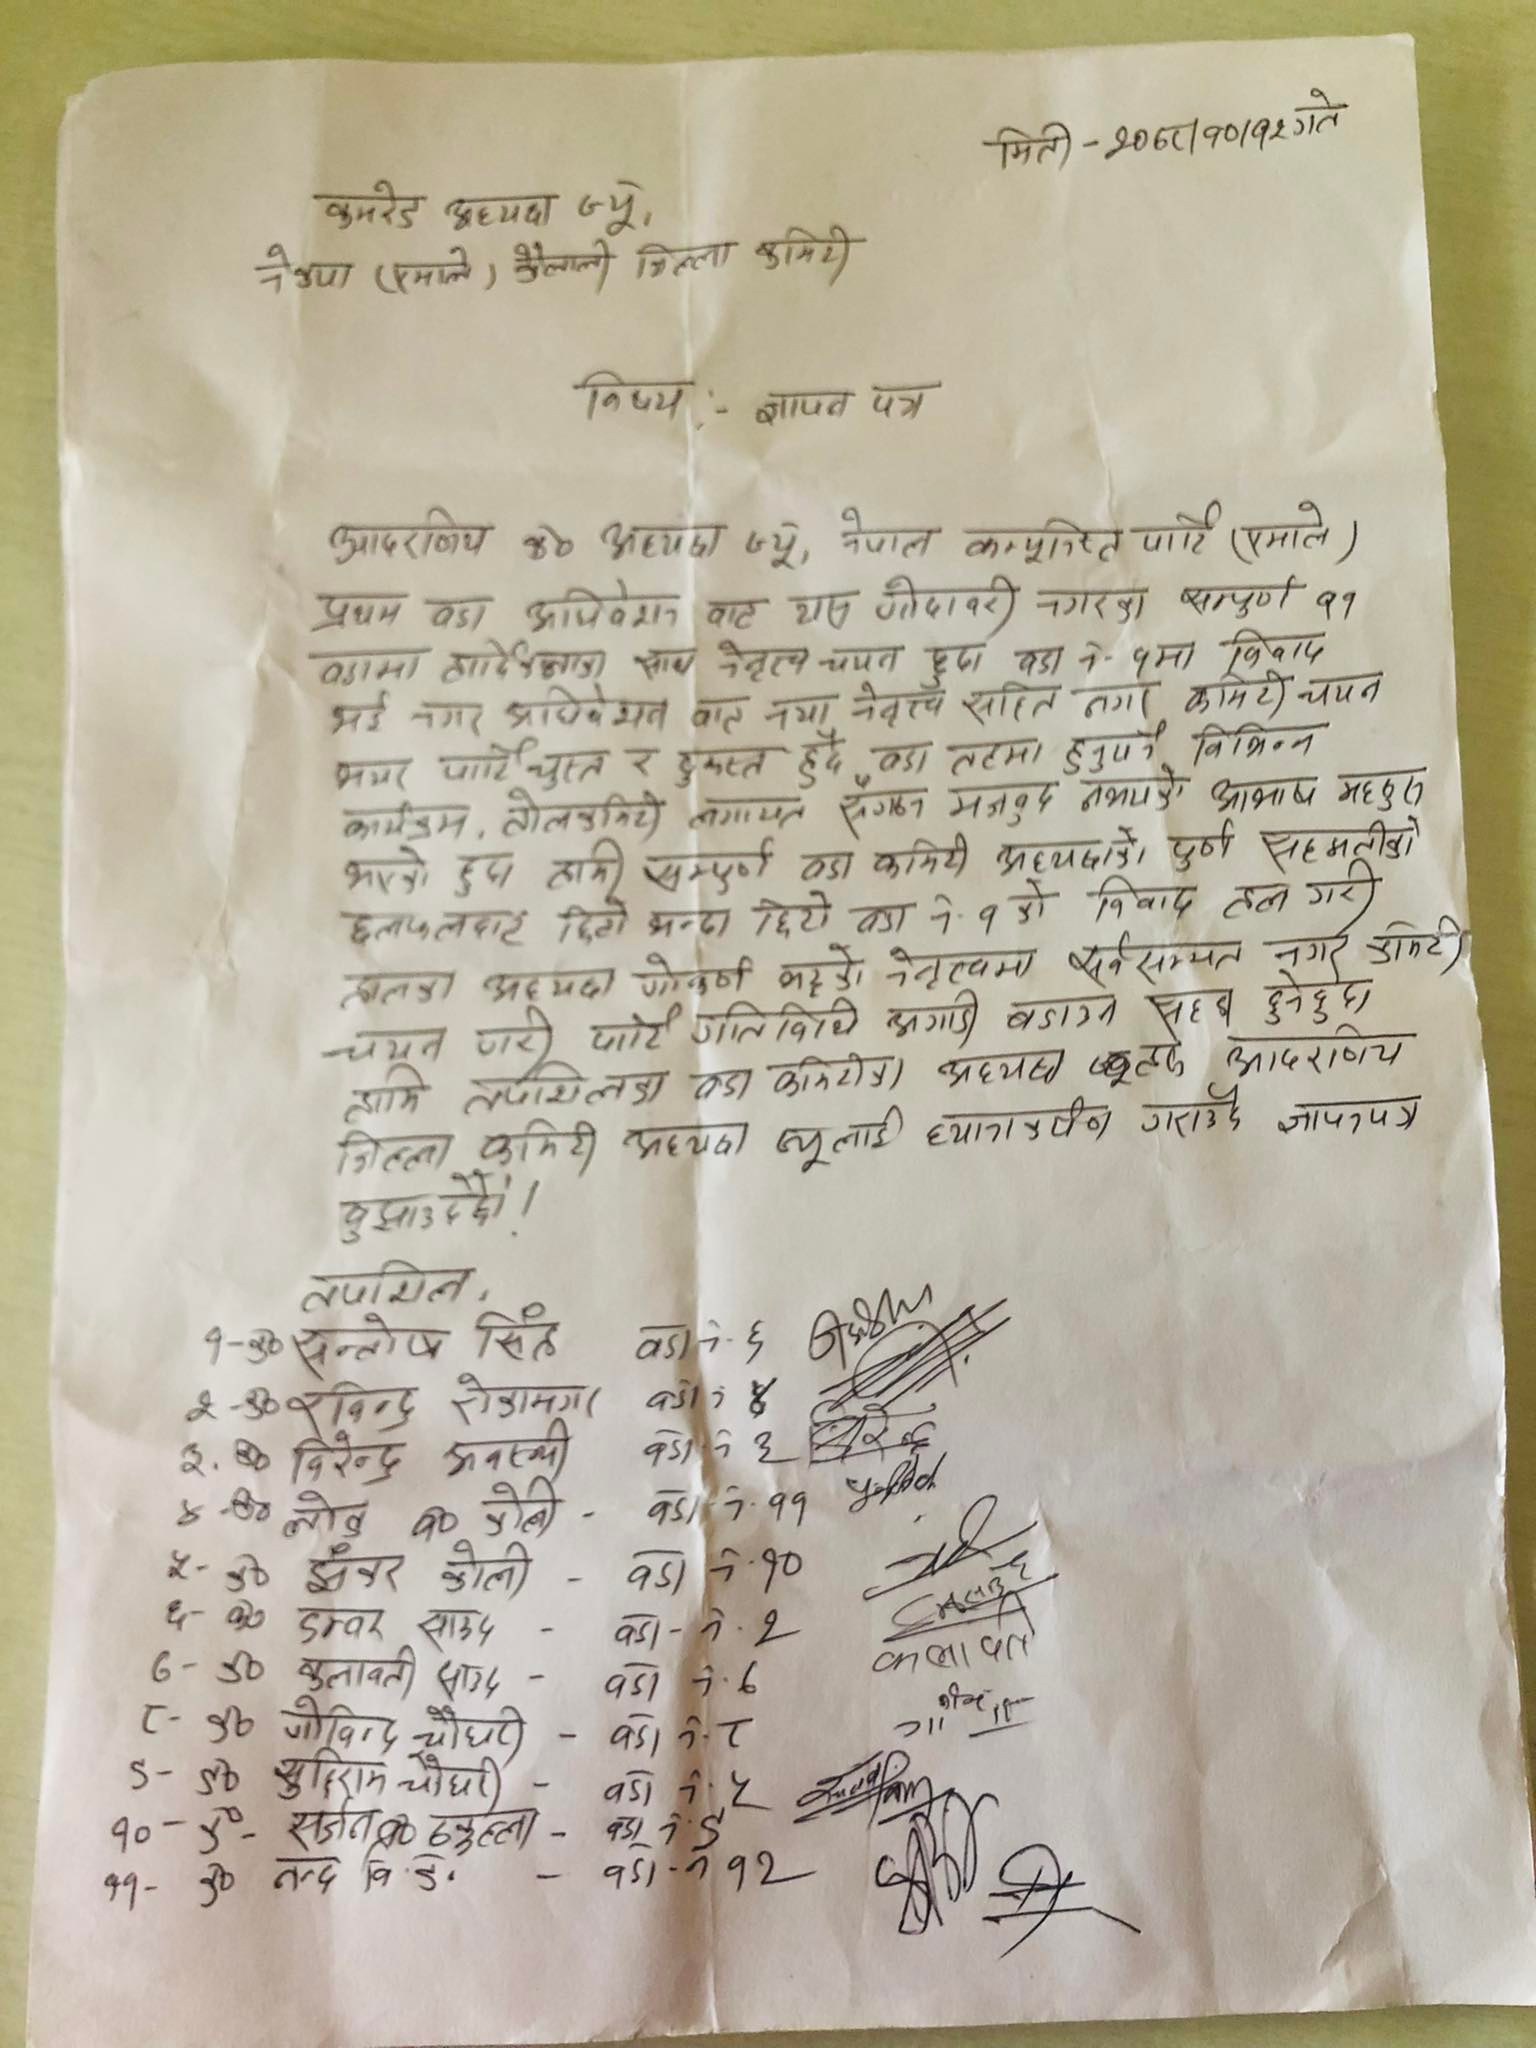 मिती - २०७८/१०/१२ गते
कमरेड अध्यक्ष ज्यू,
नेकपा (एमाले) कैलाली जिल्ला कमिटी
विषय :- ज्ञापन पत्र
आदरणिय क० अध्यक्ष ज्यू, नेपाल कम्यूनिस्ट पार्टि (एमाले)
प्रथम वडा अधिवेशन वाट यस गोदावरी नगरका सम्पुर्ण ११
वडामा हार्दिकताका साथ नेतृत्व चयन हुदा वडा नं. १ मा विवाद
भई नगर अधिवेशन वाट नया नेतृत्व सहित नगर कमिटी चयन
भएर पार्टि चुस्त र दुरुस्त हुदै वडा तहमा हुनुपर्ने विभिन्न
कार्यक्रम, टोलकमिटी लगायत संगठन मजवुद नभएको आभाष महसुस
भएको हुदा हामी सम्पुर्ण वडा कमिटी अध्यक्षको पुर्ण सहमतीको
छलफलवाट छिटो भन्दा छिटो वडा नं. १ को विवाद हल गरी
हालका अध्यक्ष गोकर्ण भट्टको नेतृत्वमा सर्वसम्मत नगर कमिटी
चयन गरी पार्टि गतिविधि अगाडी वडाउन सहज हुनेहुदा
हामि तपशिलका वडा कमिटीका अध्यक्ष ज्यूहरु आदरणिय
जिल्ला कमिटी अध्यक्ष ज्यूलाई ध्यानाकर्षण गराउदै ज्ञापनपत्र
वुझाउदछौं !
तपशिल,
१- क० सन्तोष सिंह वडा नं. ६
२- क० रविन्द्र रोकामगर वडा नं ४
३. क० विरेन्द्र अवस्थी वडा नं ३
४- क० लोक व० ओली - वडा नं. ११
५- क० झंकर ओली - वडा नं. १०
६- क० डम्वर साउद - वडा - नं. २
७- क० कलावती साउद - वडा नं. ७
कलावती
८- क० गोविन्द चौधरी - वडा नं. ८
९- क० सुद्दिराम चौधरी - वडा नं. ५
१०- क०- सर्जन व० ठकुल्ला - वडा नं. ९
११- क० नन्द वि.क. - वडा - नं १२